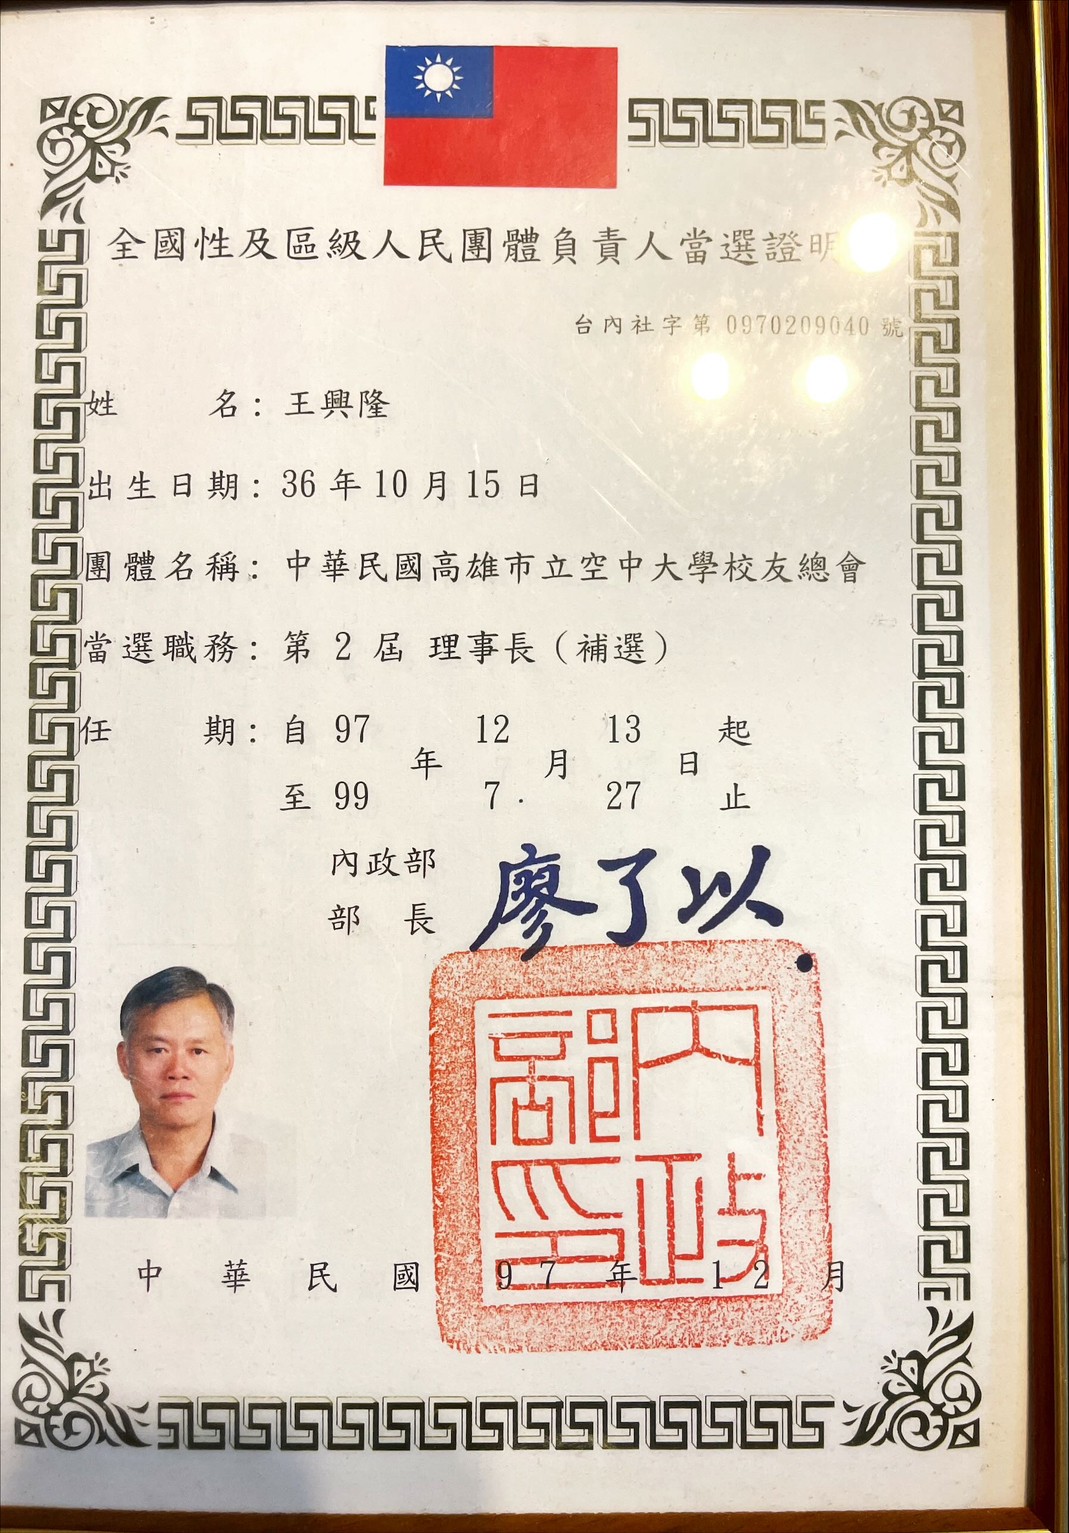 全國性及區級人民團體負責人當選證明
台內社字第 0970209040 號
姓名：王興隆
出生日期：36 年 10 月 15 日
團體名稱：中華民國高雄市立空中大學校友總會
當選職務：第 2 屆 理事長（補選）
任期：自 97 年 12 月 13 日 起
至 99 年 7 月 27 日 止
內政部
部長 廖了以
內政部印
中華民國 97 年 12 月